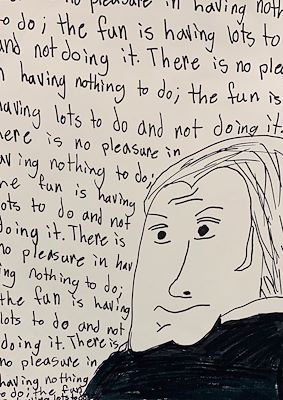 no pleasure in having noth
to do; the fun is having lots to
and not doing it. There is no plea
n having nothing to do; the fun is
having lots to do and not doing it.
here is no pleasure in
aving nothing to do;
he fun is having
lots to do and not
doing it. There is
no pleasure in hav
ing nothing to do;
the fun is having
lots to do and not
doing it. There is
no pleasure in
having nothing
to do; the fun
is having lots to